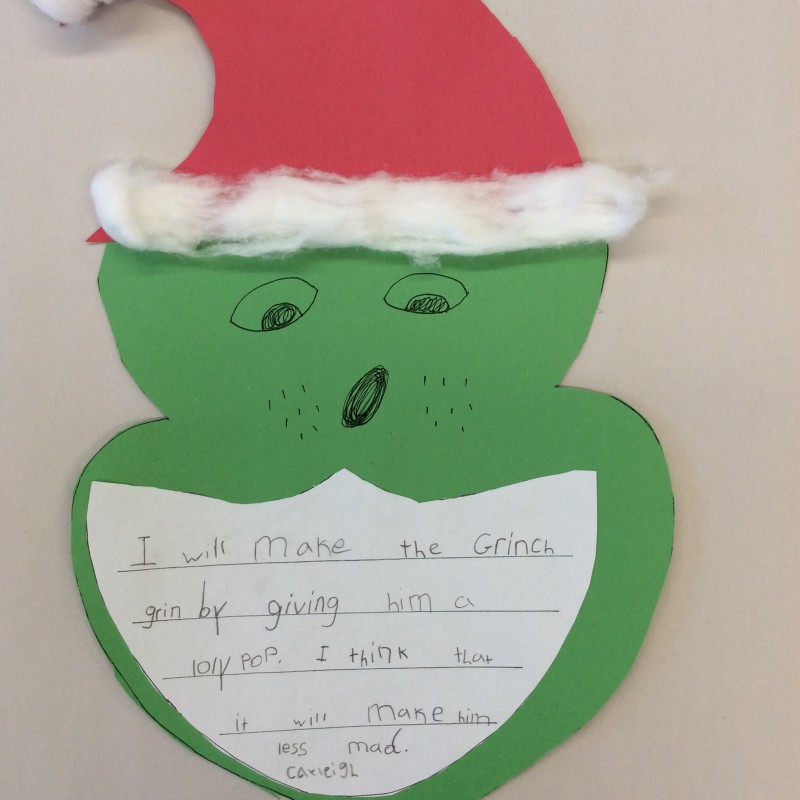 I will make the Grinch
grin by giving him a
loly pop. I think that
it will make him
less mad.
Carleigh